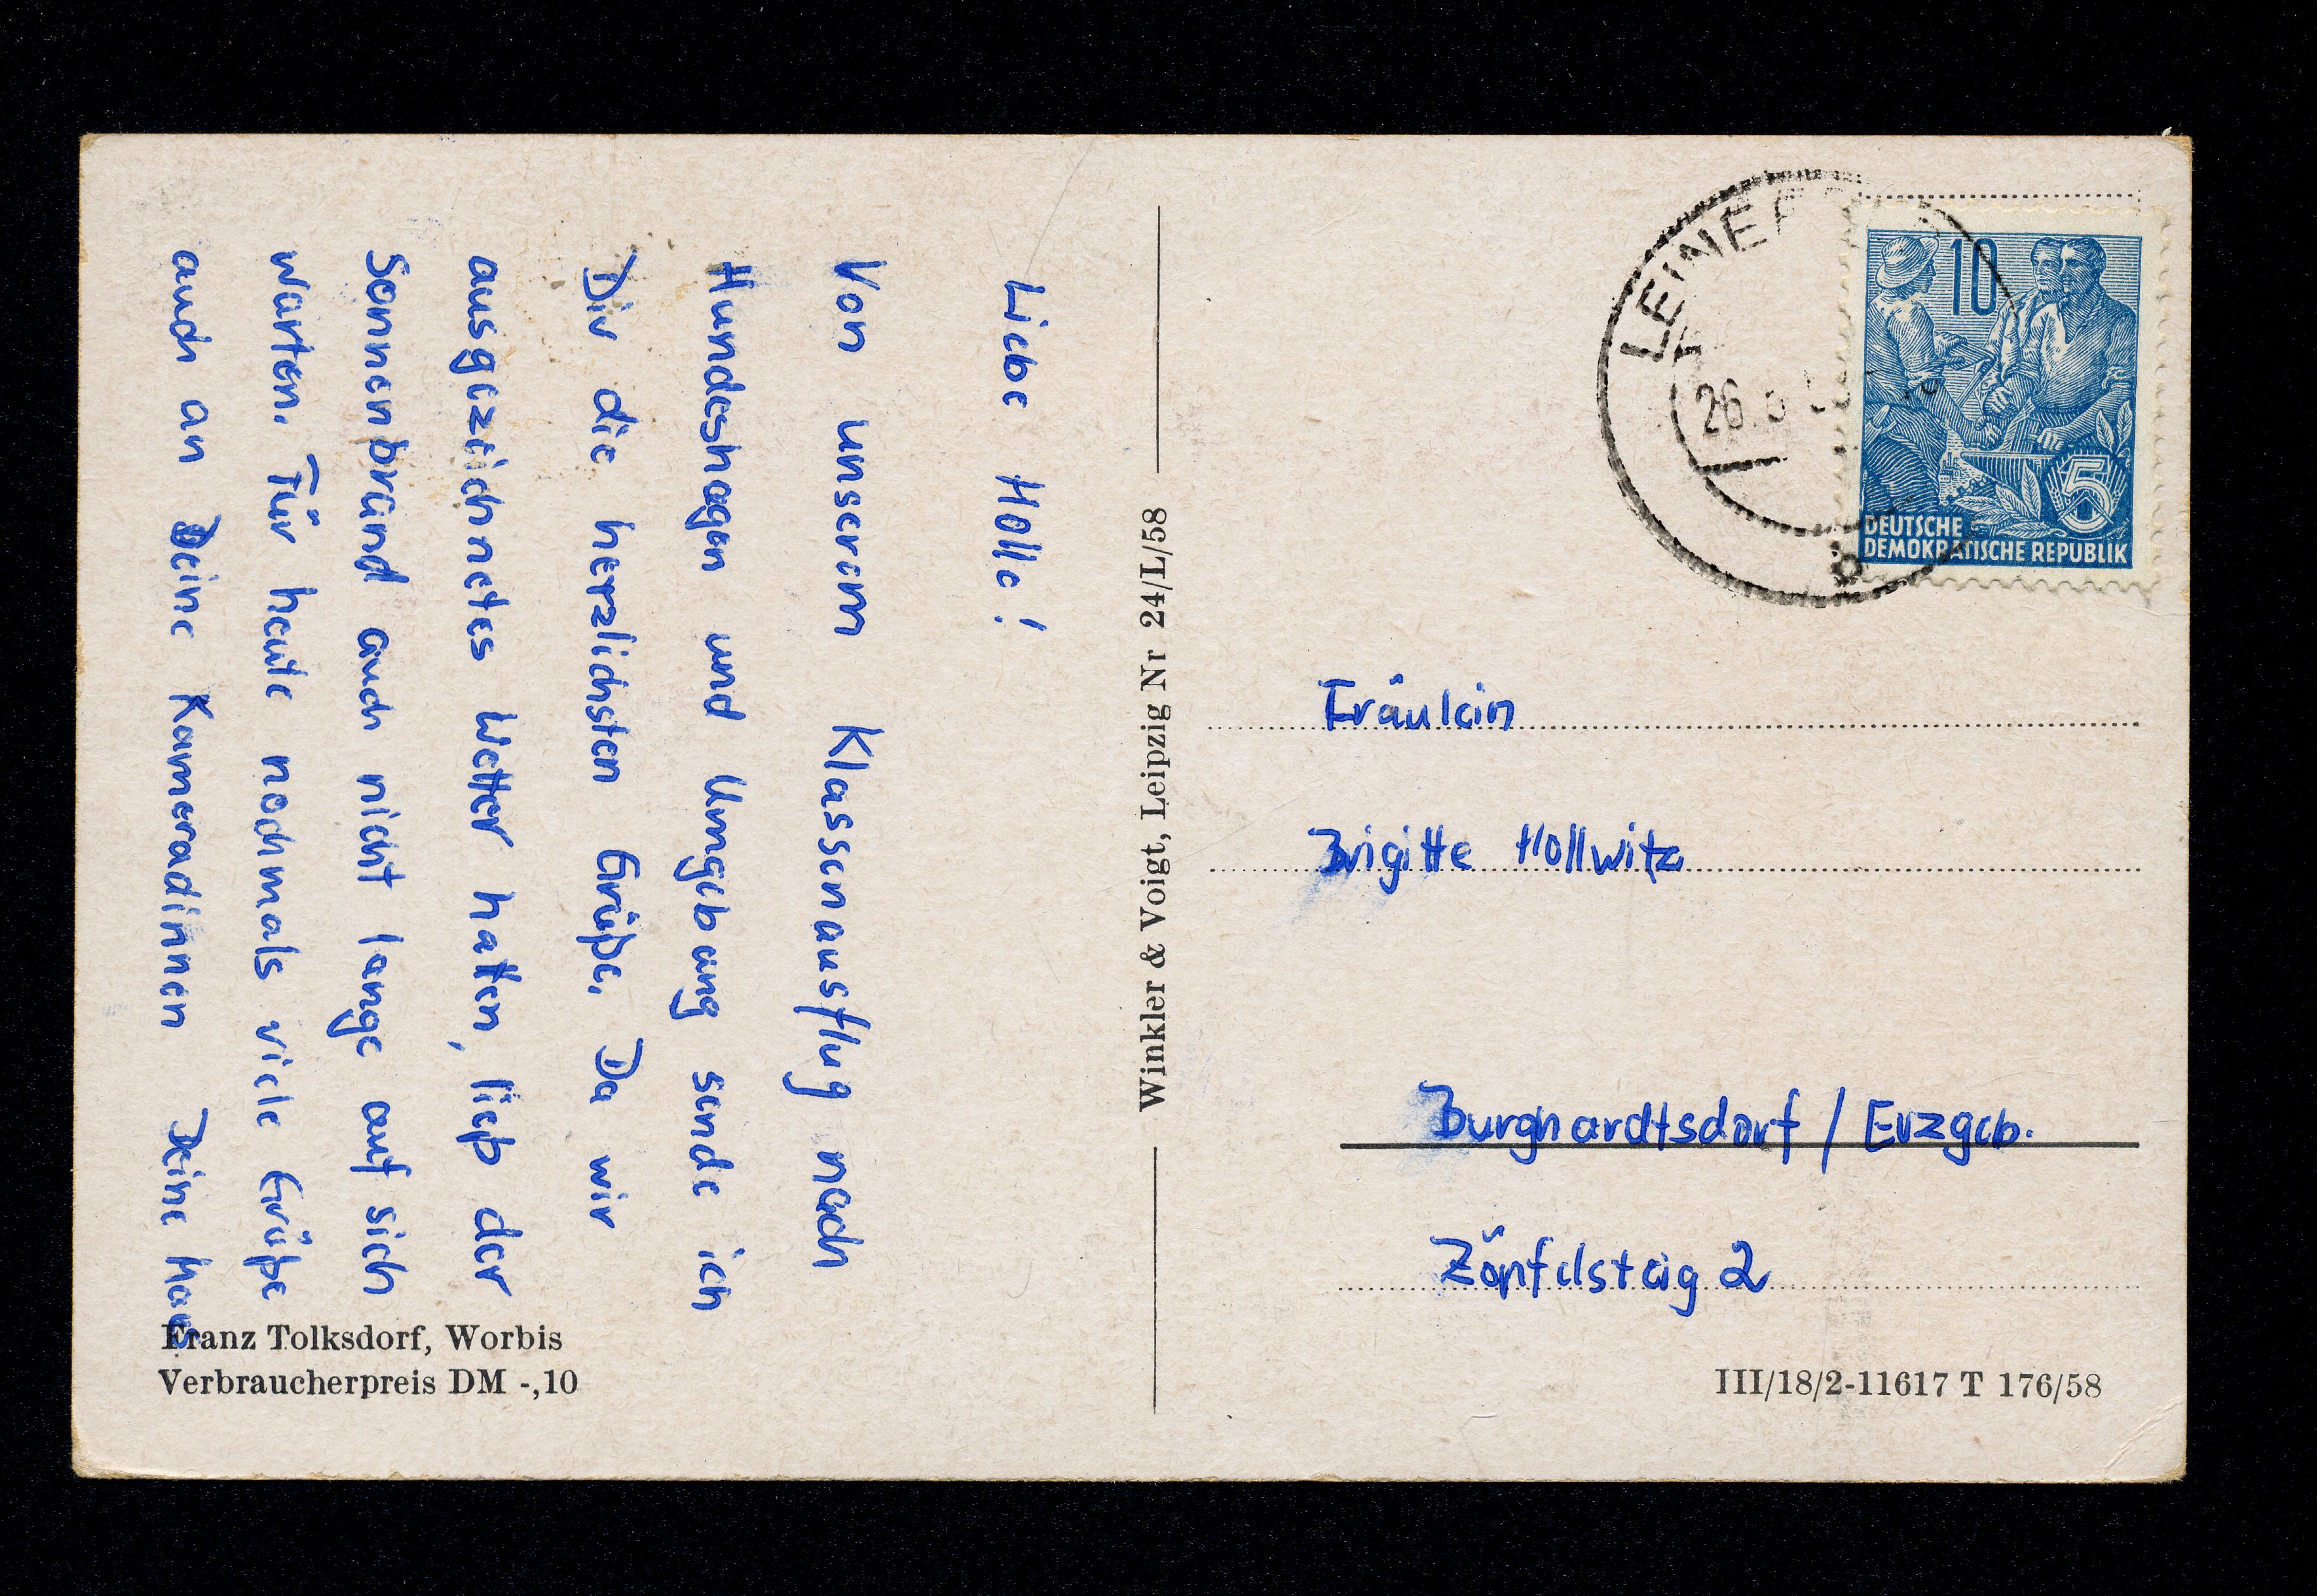 Liebe Holle!
Von unserem Klassenausflug nach
Hundeshagen und Umgebung sende ich
Dir die herzlichsten Grüße. Da wir
ausgezeichnetes Wetter hatten, ließ der
Sonnenbrand auch nicht lange auf sich
warten. Für heute nochmals viele Grüße
auch an Deine Kameradinnen Deine
Franz Tolksdorf, Worbis
Verbraucherpreis DM -,10
Winkler & Voigt, Leipzig Nr 24/L/58
26.
10
5
DEUTSCHE
DEMOKRATISCHE REPUBLIK
b
Fräulein
Brigitte Hollwitz
Burghardtsdorf / Erzgeb.
Zöpfelsteig 2
III/18/2-11617 T 176/58